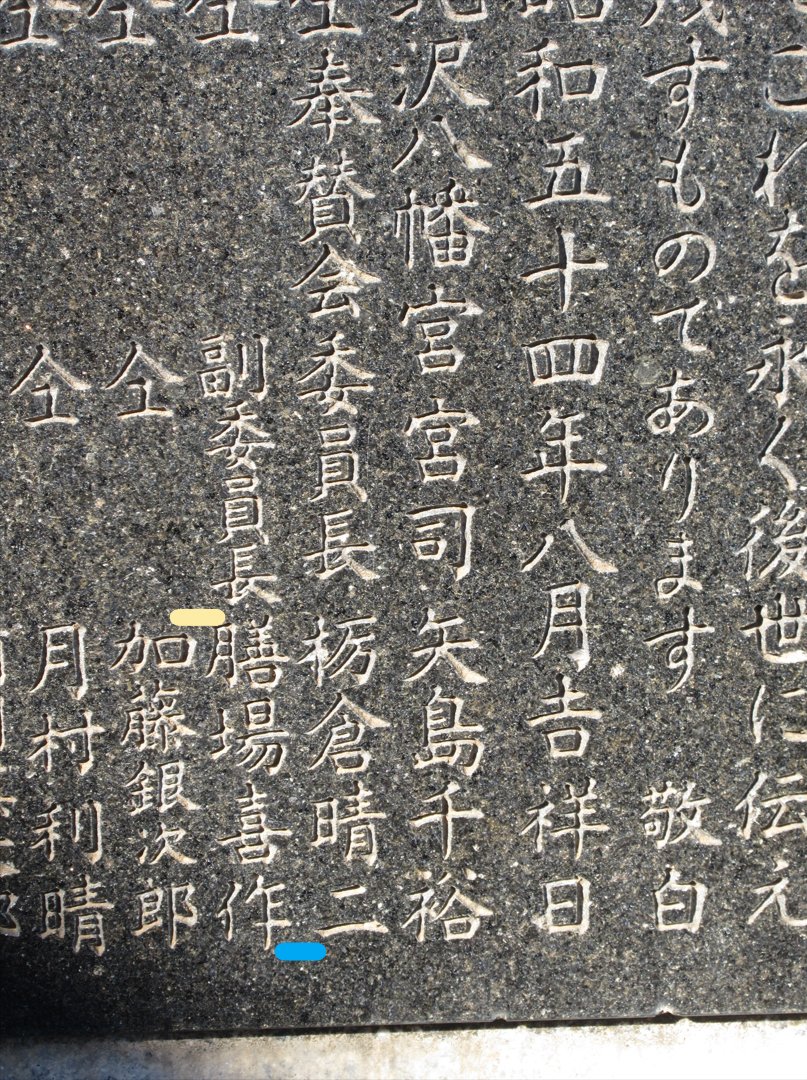 これを永く後世に伝え
すものであります 敬白
昭和五十四年八月吉祥日
北沢八幡宮宮司 矢島千裕
奉賛会委員長 栃倉晴二
副委員長 膳場喜作
仝 加藤銀次郎
仝 月村利晴